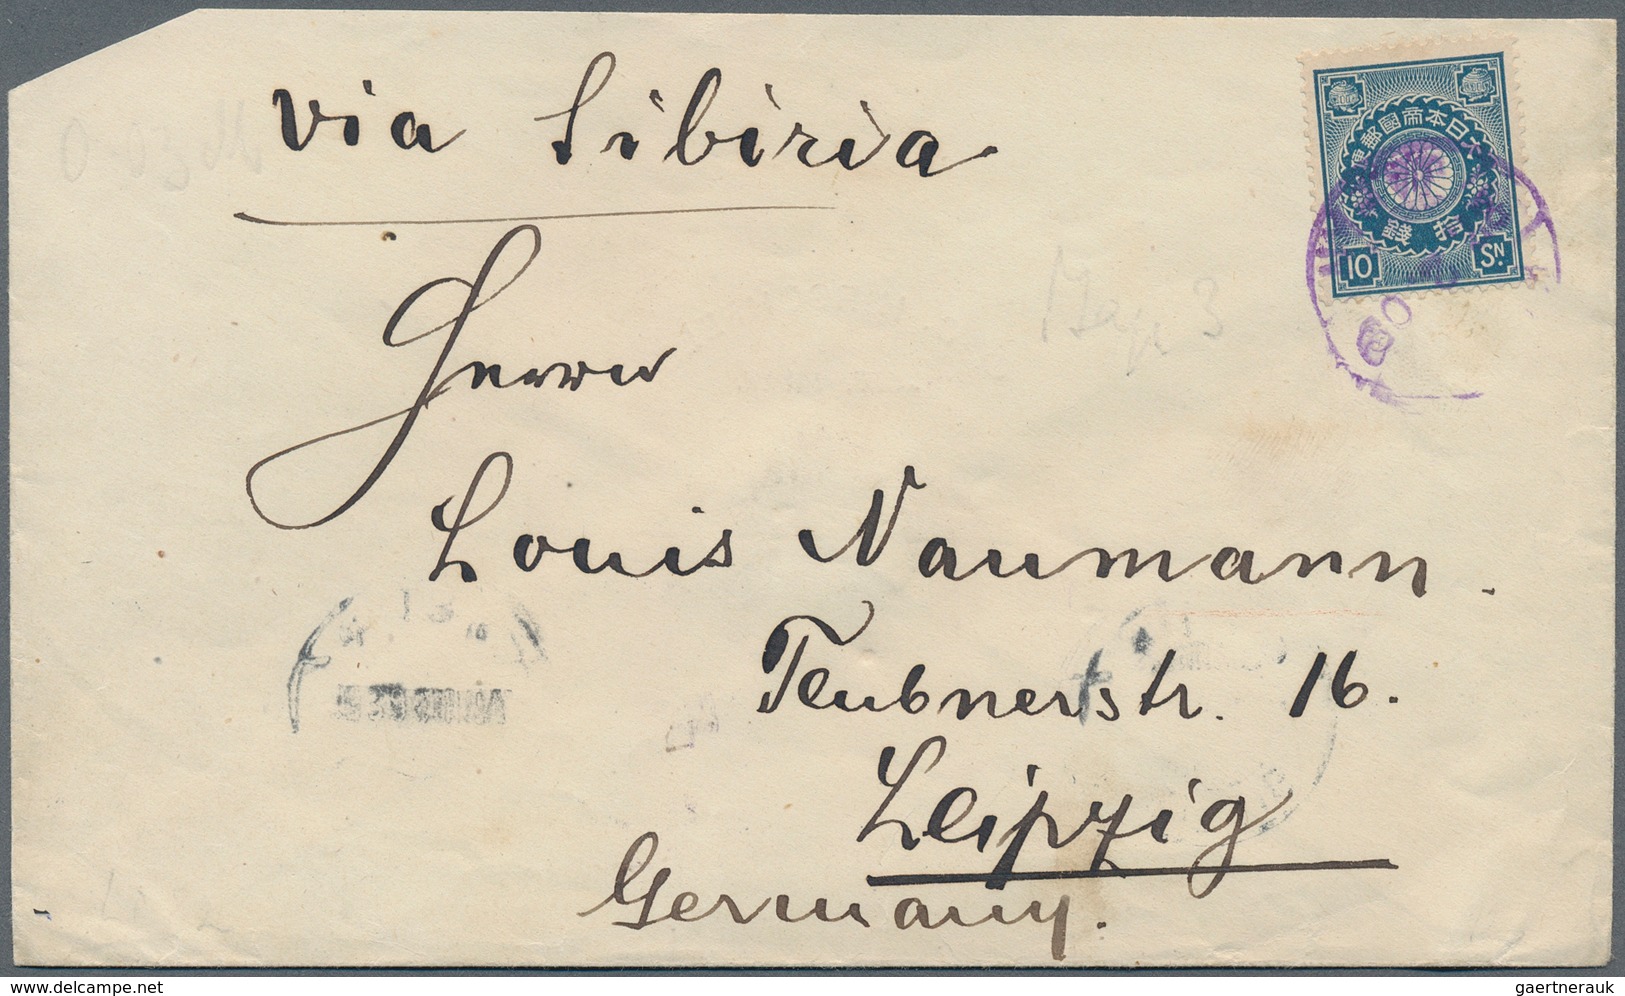 via Sibiria
大日本帝國郵便
拾錢
10 SN.
Herrn
Louis Naumann.
Teubnerstr. 16.
Leipzig
Germany.
www.delcampe.net
gaertnerauk